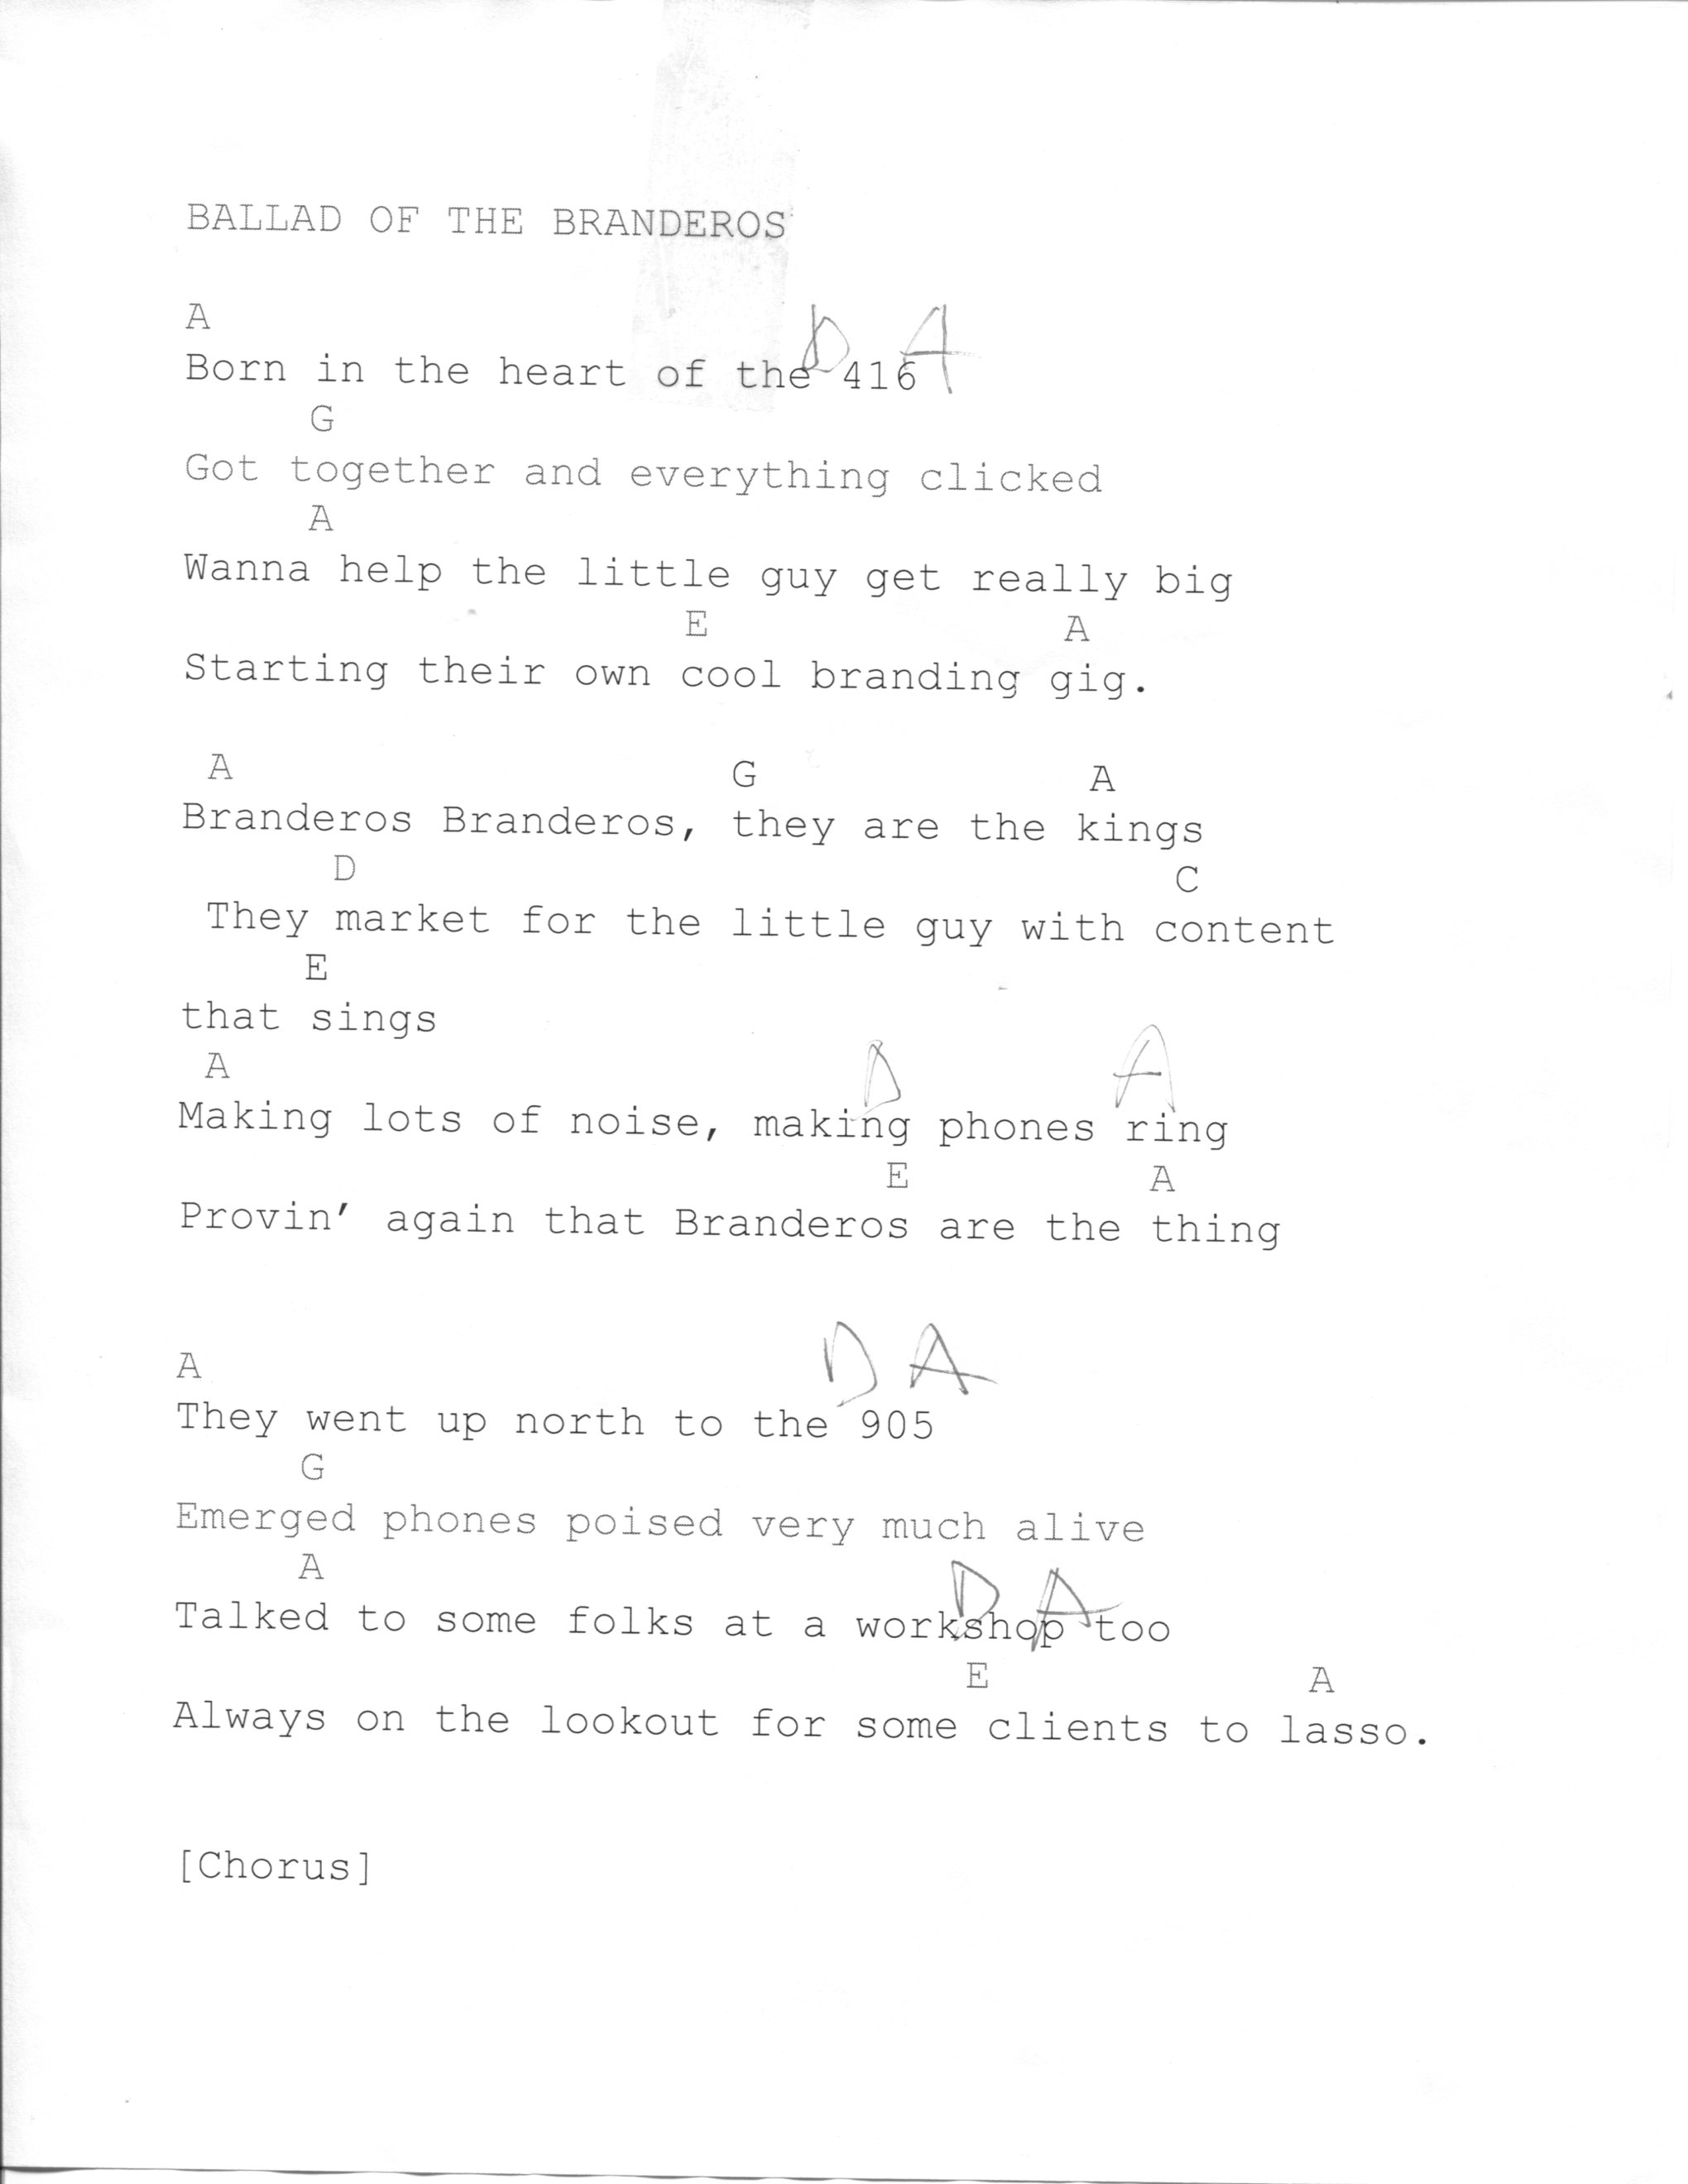 BALLAD OF THE BRANDEROS
A D A
Born in the heart of the 416
G
Got together and everything clicked
A
Wanna help the little guy get really big
E A
Starting their own cool branding gig.
A G A
Branderos Branderos, they are the kings
D C
They market for the little guy with content
E
that sings
A D A
Making lots of noise, making phones ring
E A
Provin’ again that Branderos are the thing
A D A
They went up north to the 905
G
Emerged phones poised very much alive
A D A
Talked to some folks at a workshop too
E A
Always on the lookout for some clients to lasso.
[Chorus]